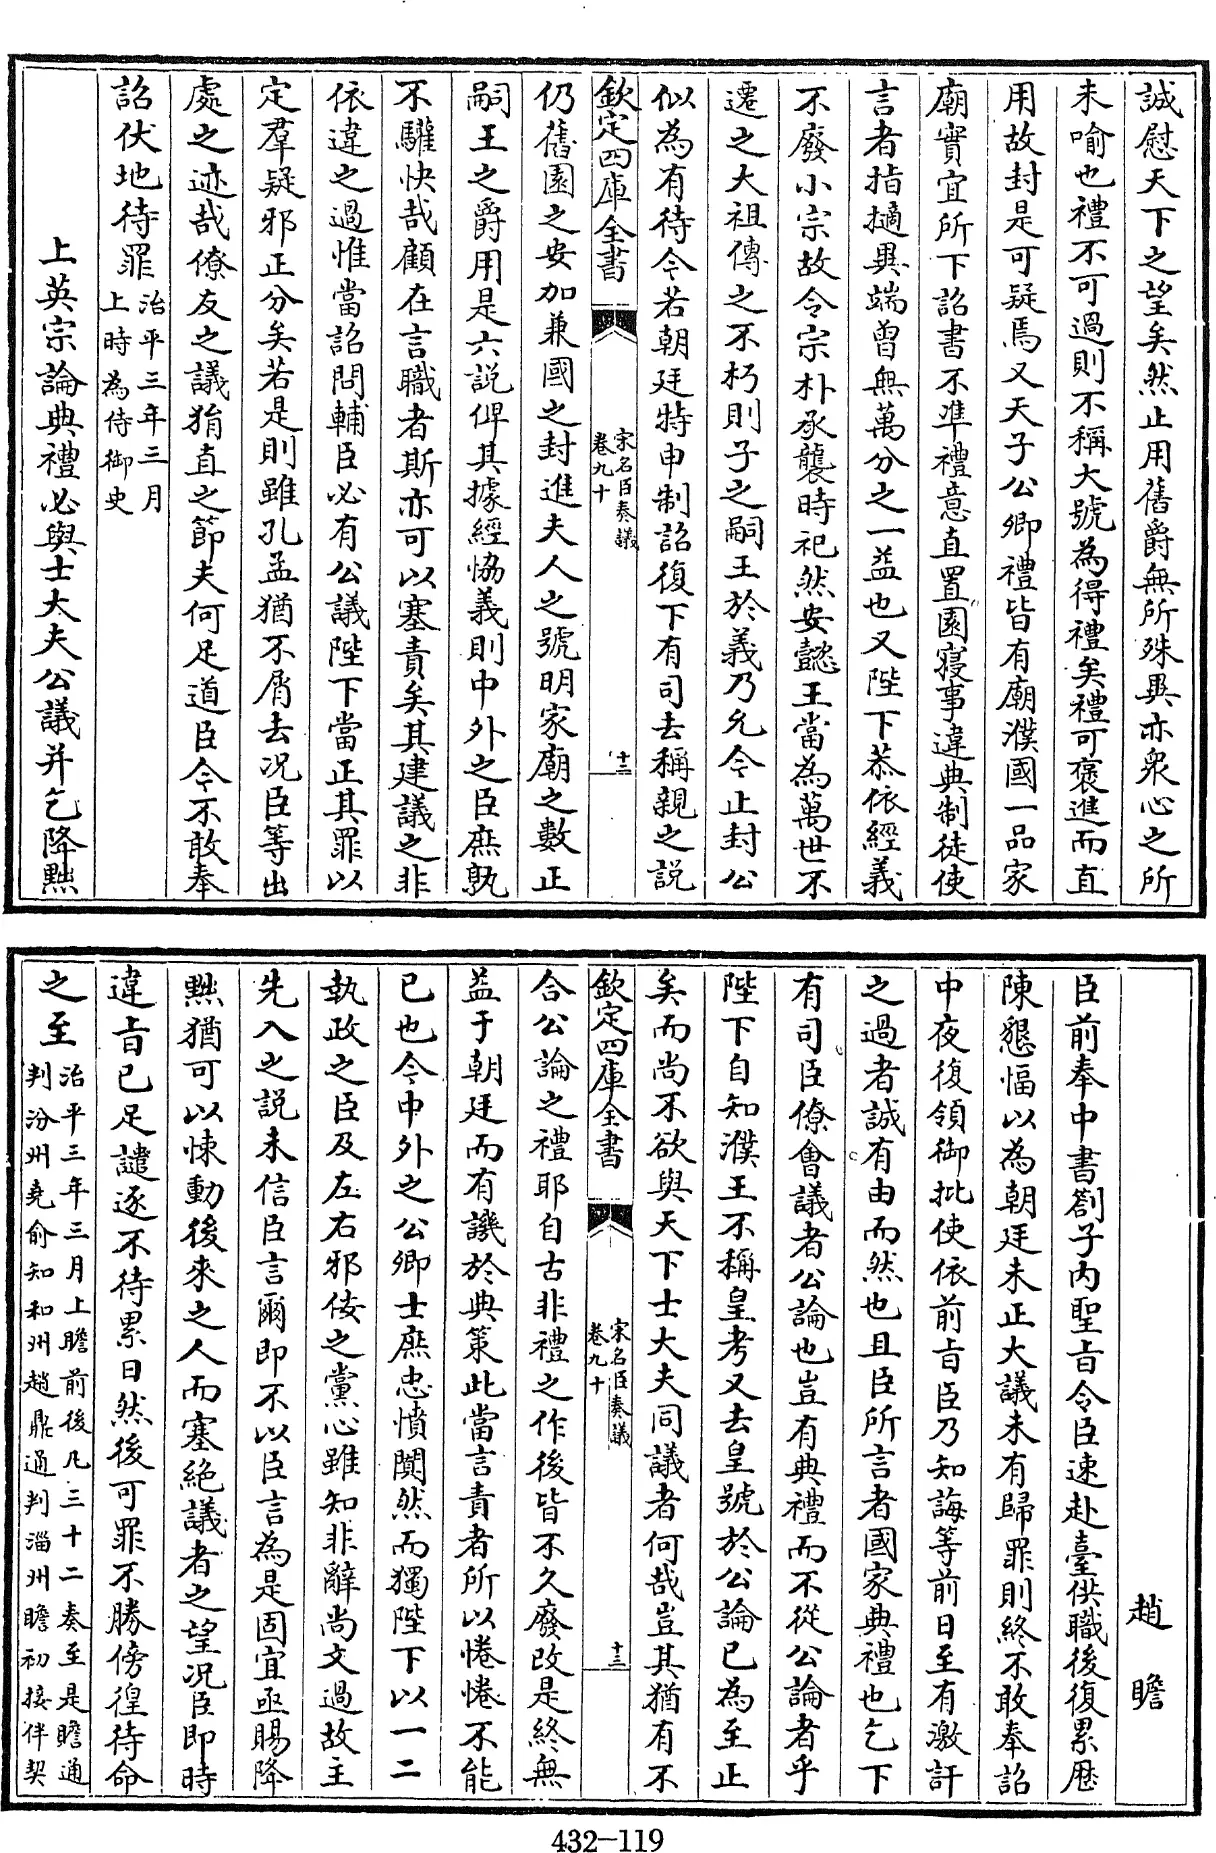 誠慰天下之望矣然止用舊爵無所殊異亦衆心之所
未喻也禮不可過則不稱大號為得禮矣禮可褒進而直
用故封是可疑焉又天子公卿禮皆有廟濮國一品家
廟實宜所下詔書不準禮意直置園寢事違典制徒使
言者指擿異端曾無萬分之一益也又陛下恭依經義
不廢小宗故令宗朴承襲時祀然安懿王當為萬世不
遷之大祖傳之不朽則子之嗣王於義乃允今止封公
似為有待今若朝廷特申制詔復下有司去稱親之說
欽定四庫全書
宋名臣奏議
卷九十
十二
仍舊園之安加兼國之封進夫人之號明家廟之數正
嗣王之爵用是六說俾其據經協義則中外之臣庶孰
不驩快哉顧在言職者斯亦可以塞責矣其建議之非
依違之過惟當詔問輔臣必有公議陛下當正其罪以
定羣疑邪正分矣若是則雖孔孟猶不屑去况臣等出
處之迹哉僚友之議狥直之節夫何足道臣今不敢奉
詔伏地待罪
治平三年三月
上時為侍御史
上英宗論典禮必與士大夫公議并乞降黜
趙瞻
臣前奉中書劄子內聖旨令臣速赴臺供職後復累歷
陳懇愊以為朝廷未正大議未有歸罪則終不敢奉詔
中夜復領御批使依前旨臣乃知誨等前日至有激訐
之過者誠有由而然也且臣所言者國家典禮也乞下
有司臣僚會議者公論也豈有典禮而不從公論者乎
陛下自知濮王不稱皇考又去皇號於公論已為至正
矣而尚不欲與天下士大夫同議者何哉豈其猶有不
欽定四庫全書
宋名臣奏議
卷九十
十三
合公論之禮耶自古非禮之作後皆不久廢改是終無
益于朝廷而有譏於典策此當言責者所以惓惓不能
已也今中外之公卿士庶忠憤閧然而獨陛下以一二
執政之臣及左右邪佞之黨心雖知非辭尚文過故主
先入之說未信臣言爾即不以臣言為是固宜亟賜降
黜猶可以悚動後來之人而塞絕議者之望况臣即時
違旨已足譴逐不待累日然後可罪不勝傍徨待命
之至
治平三年三月上瞻前後凡三十二奏至是瞻通
判汾州堯俞知和州趙鼎通判淄州瞻初接伴契
432-119